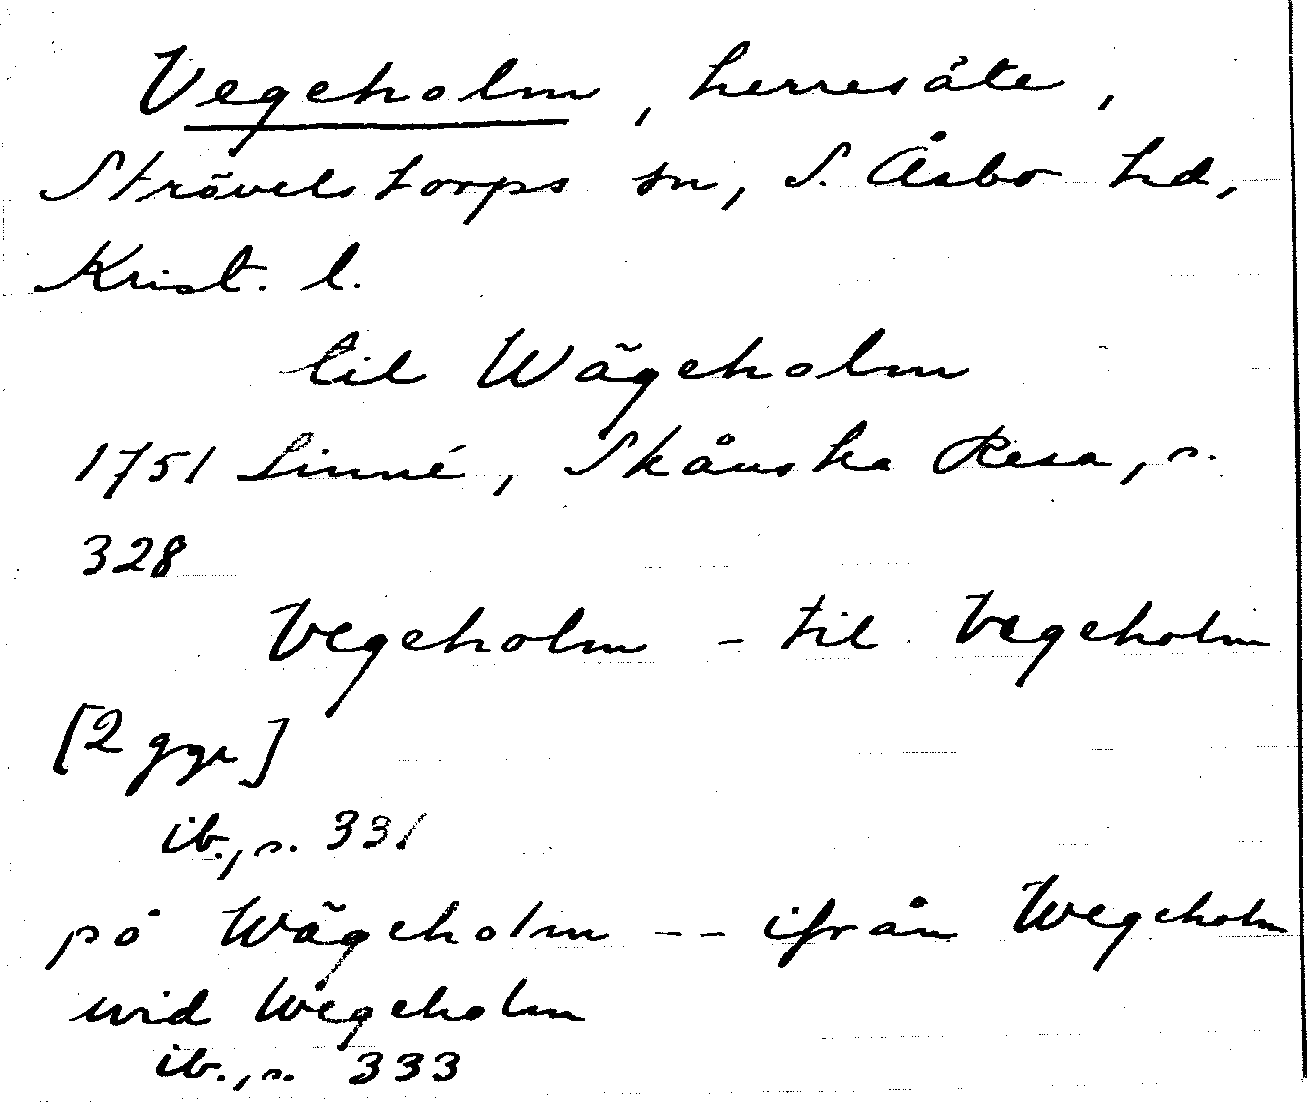 Vegeholm, herresäte,
Strövelstorps sn, S. Åsbo hd,
Krist. l.
til Wägeholm
1751 Linné, Skånska Resa, s.
328
Vegeholm - til Vegeholm
[2 ggr]
ib., s. 331
på Wägeholm -- ifrån Wegeholm
wid Wegeholm
ib., s. 333